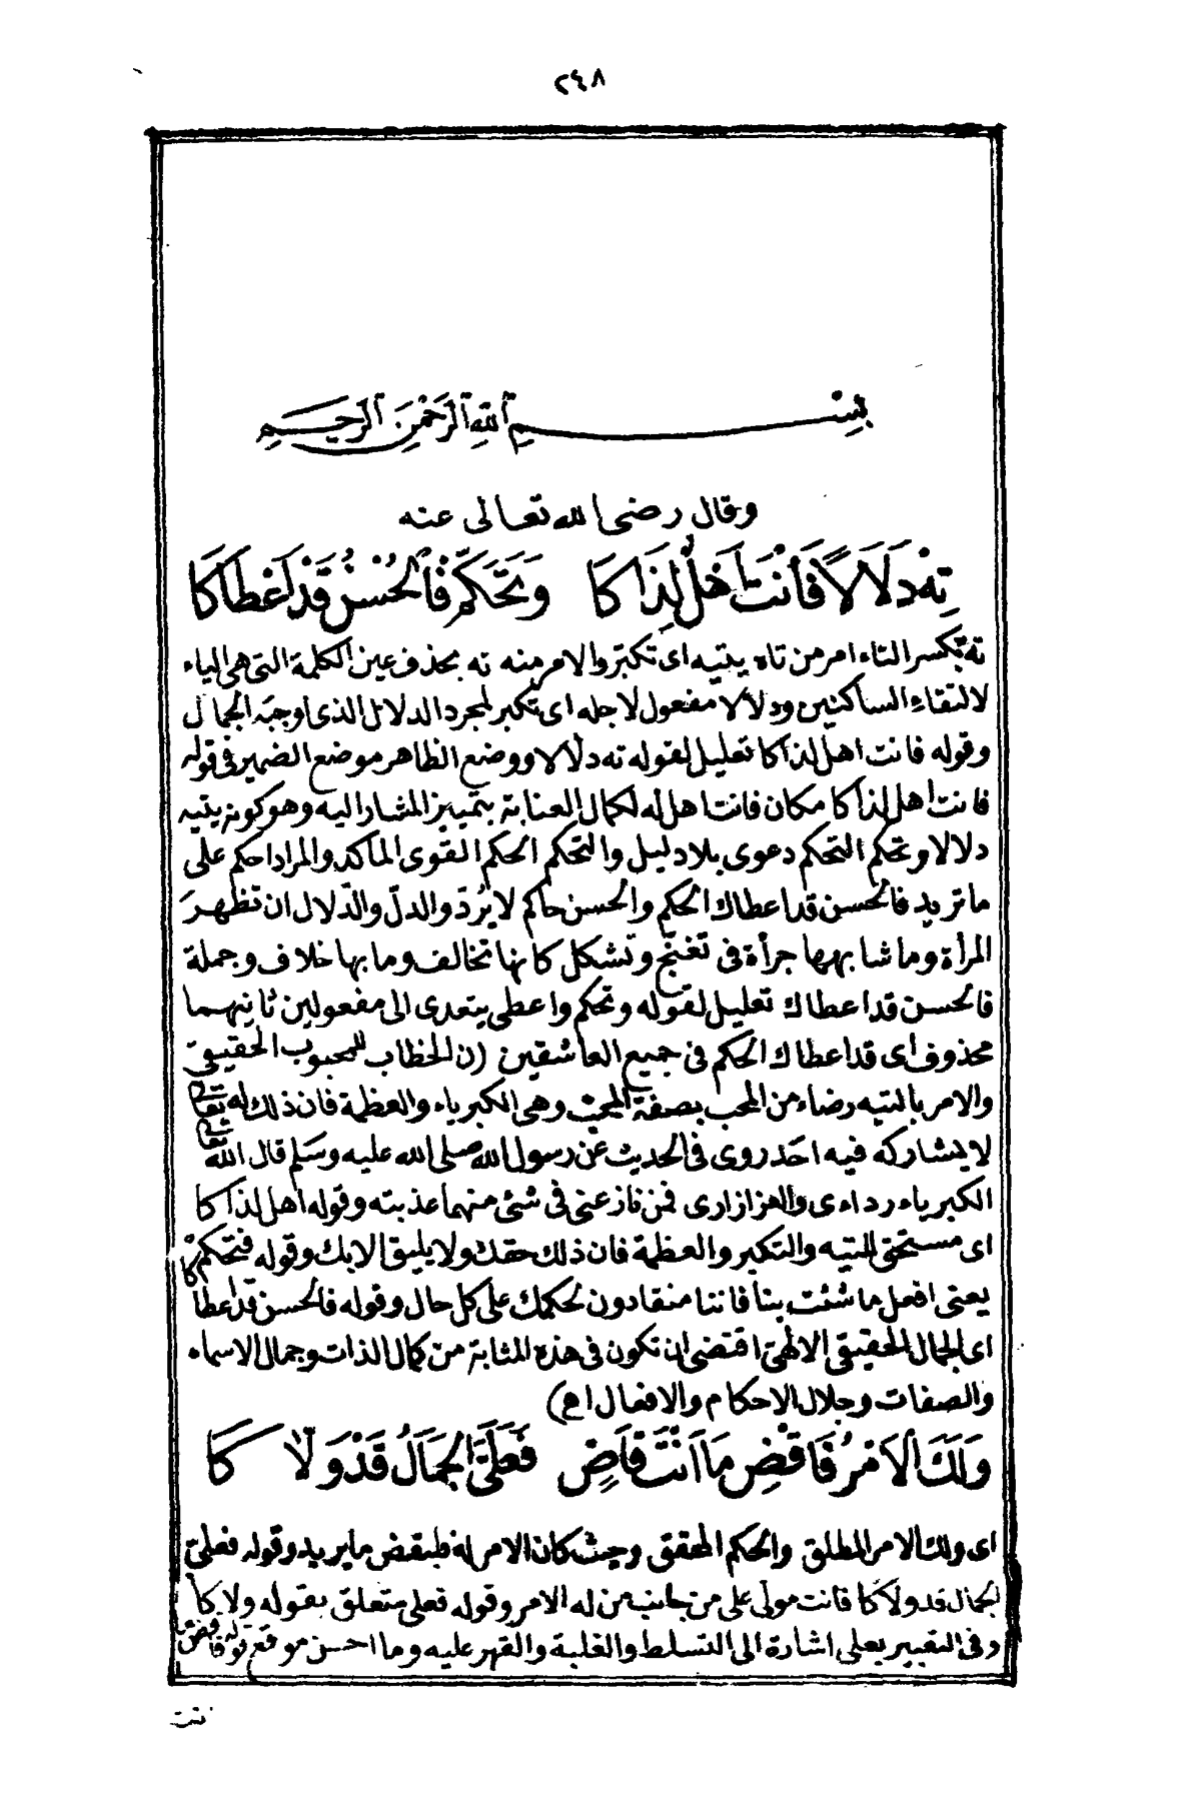 ٢٤٨
بِسْمِ اللّٰهِ الرَّحْمٰنِ الرَّحِيمِ
وقال رضى الله تعالى عنه
تِهْ دَلَالاً فَأَنْتَ أَهْلٌ لِذَاكَا وَتَحَكَّمْ فَالْحُسْنُ قَدْ أَعْطَاكَا
ته بكسر التاء امر من تاه يتيه اى تكبر والامر منه ته بحذف عين الكلمة التى هى الياء
لالتقاء الساكنين ودلالا مفعول لاجله اى تكبر لمجرد الدلال الذى اوجبه الجمال
وقوله فانت اهل لذاكا تعليل لقوله ته دلالا ووضع الظاهر موضع الضمير فى قوله
فانت اهل لذاكا مكان فانت اهل له لكمال العناية بتمييز المشار اليه وهو كونه يتيه
دلالا وتحكم التحكم دعوى بلا دليل والتحكم الحكم القوى الماكد والمراد احكم على
ما تريد فالحسن قد اعطاك الحكم والحسن حاكم لا يُردّ والدلّ والدّلال ان تظهرَ
المرأة وما شابهها جرأة فى تغنّج وتشكل كانها تخالف وما بها خلاف وجملة
فالحسن قد اعطاك تعليل لقوله وتحكم واعطى يتعدى الى مفعولين ثانيهما
محذوف اى قد اعطاك الحكم فى جميع العاشقين (ن الخطاب للمحبوب الحقيقىّ
والامر بالتيه رضاء من المحب بصفة المحبّ وهى الكبرياء والعظمة فان ذلك له تعالى
لا يشاركه فيه احد روى فى الحديث عن رسول الله صلى الله عليه وسَلم قال الله تعالى
الكبرياء رداءى والعز ازارى فمن نازعنى فى شئ منهما عذبته وقوله اهل لذاكا
اى مستحق للتيه والتكبر والعظمة فان ذلك حقك ولا يليق الا بك وقوله فتحكمْ
يعنى افعل ما شئت بنا فاننا منقادون لحكمك على كل حال وقوله فالحسن قد اعطاكا
اى الجمال الحقيقى الالهىّ اقتضى ان تكون فى هذه المثابة من كمال الذات وجمال الاسماء
والصفات وجلال الاحكام والافعال اهـ)
وَلَكَ الْأَمْرُ فَاقْضِ مَا أَنْتَ قَاضٍ فَعَلَيَّ الْجَمَالُ قَدْ وَلَّاكَا
اى ولك الامر المطلق والحكم المحقق وحيث كان الامر له فليقض ما يريد وقوله فعلىّ
الجمال قد ولاكا فانت مولّى علىّ من جانب من له الامر وقوله فعلى متعلق بقوله ولاكا
وفى التعبير بعلى اشارة الى التسلط والغلبة والقهر عليه وما احسن موقع قوله فاقض